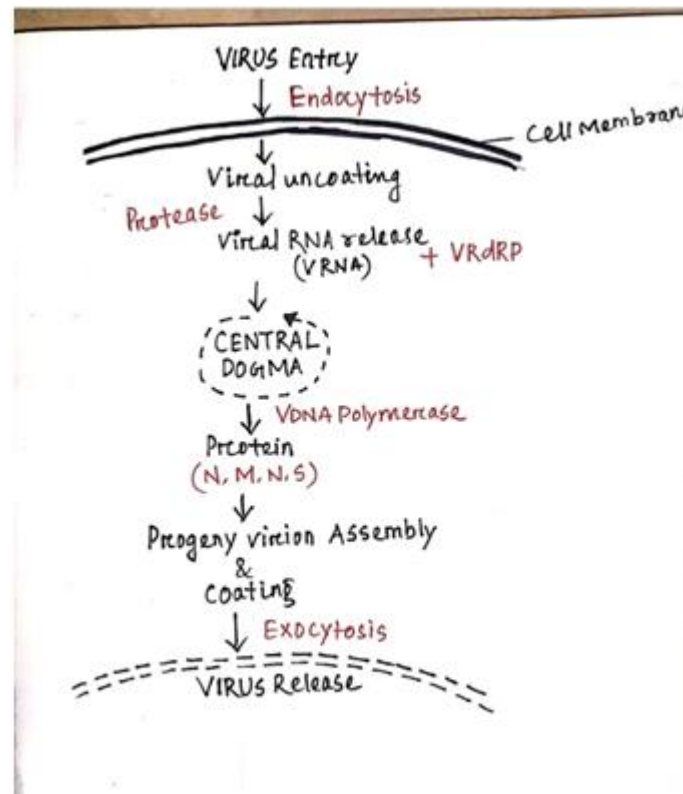 VIRUS Entry
Endocytosis
Cell Membran
Viral uncoating
Protease
Viral RNA release
(VRNA)
+ VRdRP
CENTRAL
DOGMA
VDNA Polymerase
Protein
(N, M, N, S)
Progeny virion Assembly
&
Coating
Exocytosis
VIRUS Release